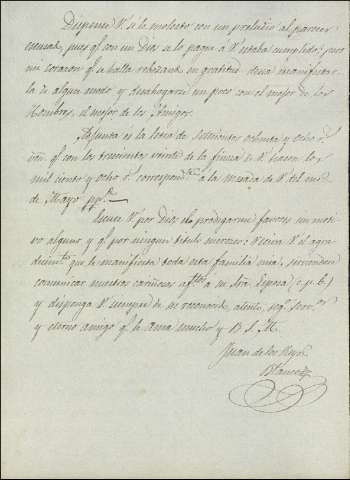 Dispense V. si le molesto con un preludio al parecer
escusado, pues q.e con un Dios se lo pague a V. estaba cumplido; pero
mi corazon q.e se halla rebozando en gratitud desea manifestar
la de algun modo y desahogarse un poco con el mejor de los
Hombres, el mejor de los Amigos.
Adjunta es la letra de setecientos ochenta y ocho r.s
v.on q.e con los trescientos veinte de la fianza de V. hacen los
mil ciento y ocho r.s correspond.tes a la mesada de V. del mes
de Mayo pp.do
V. por Dios el prodigarme favores sin moti
vo alguno y q.e por ningun titulo merezco: V. el agra
decim.to que le manifiesta toda esta familia mia, sirviendose
comunicar nuestros cariñosos af.tos a su S.ra Esposa (c.p.b.)
y disponga V. siempre de su reconocido, atento, seg.o Serv.or
y eterno amigo q.e le ama mucho y B. S. M.
Juan de los Reyes
Blanco